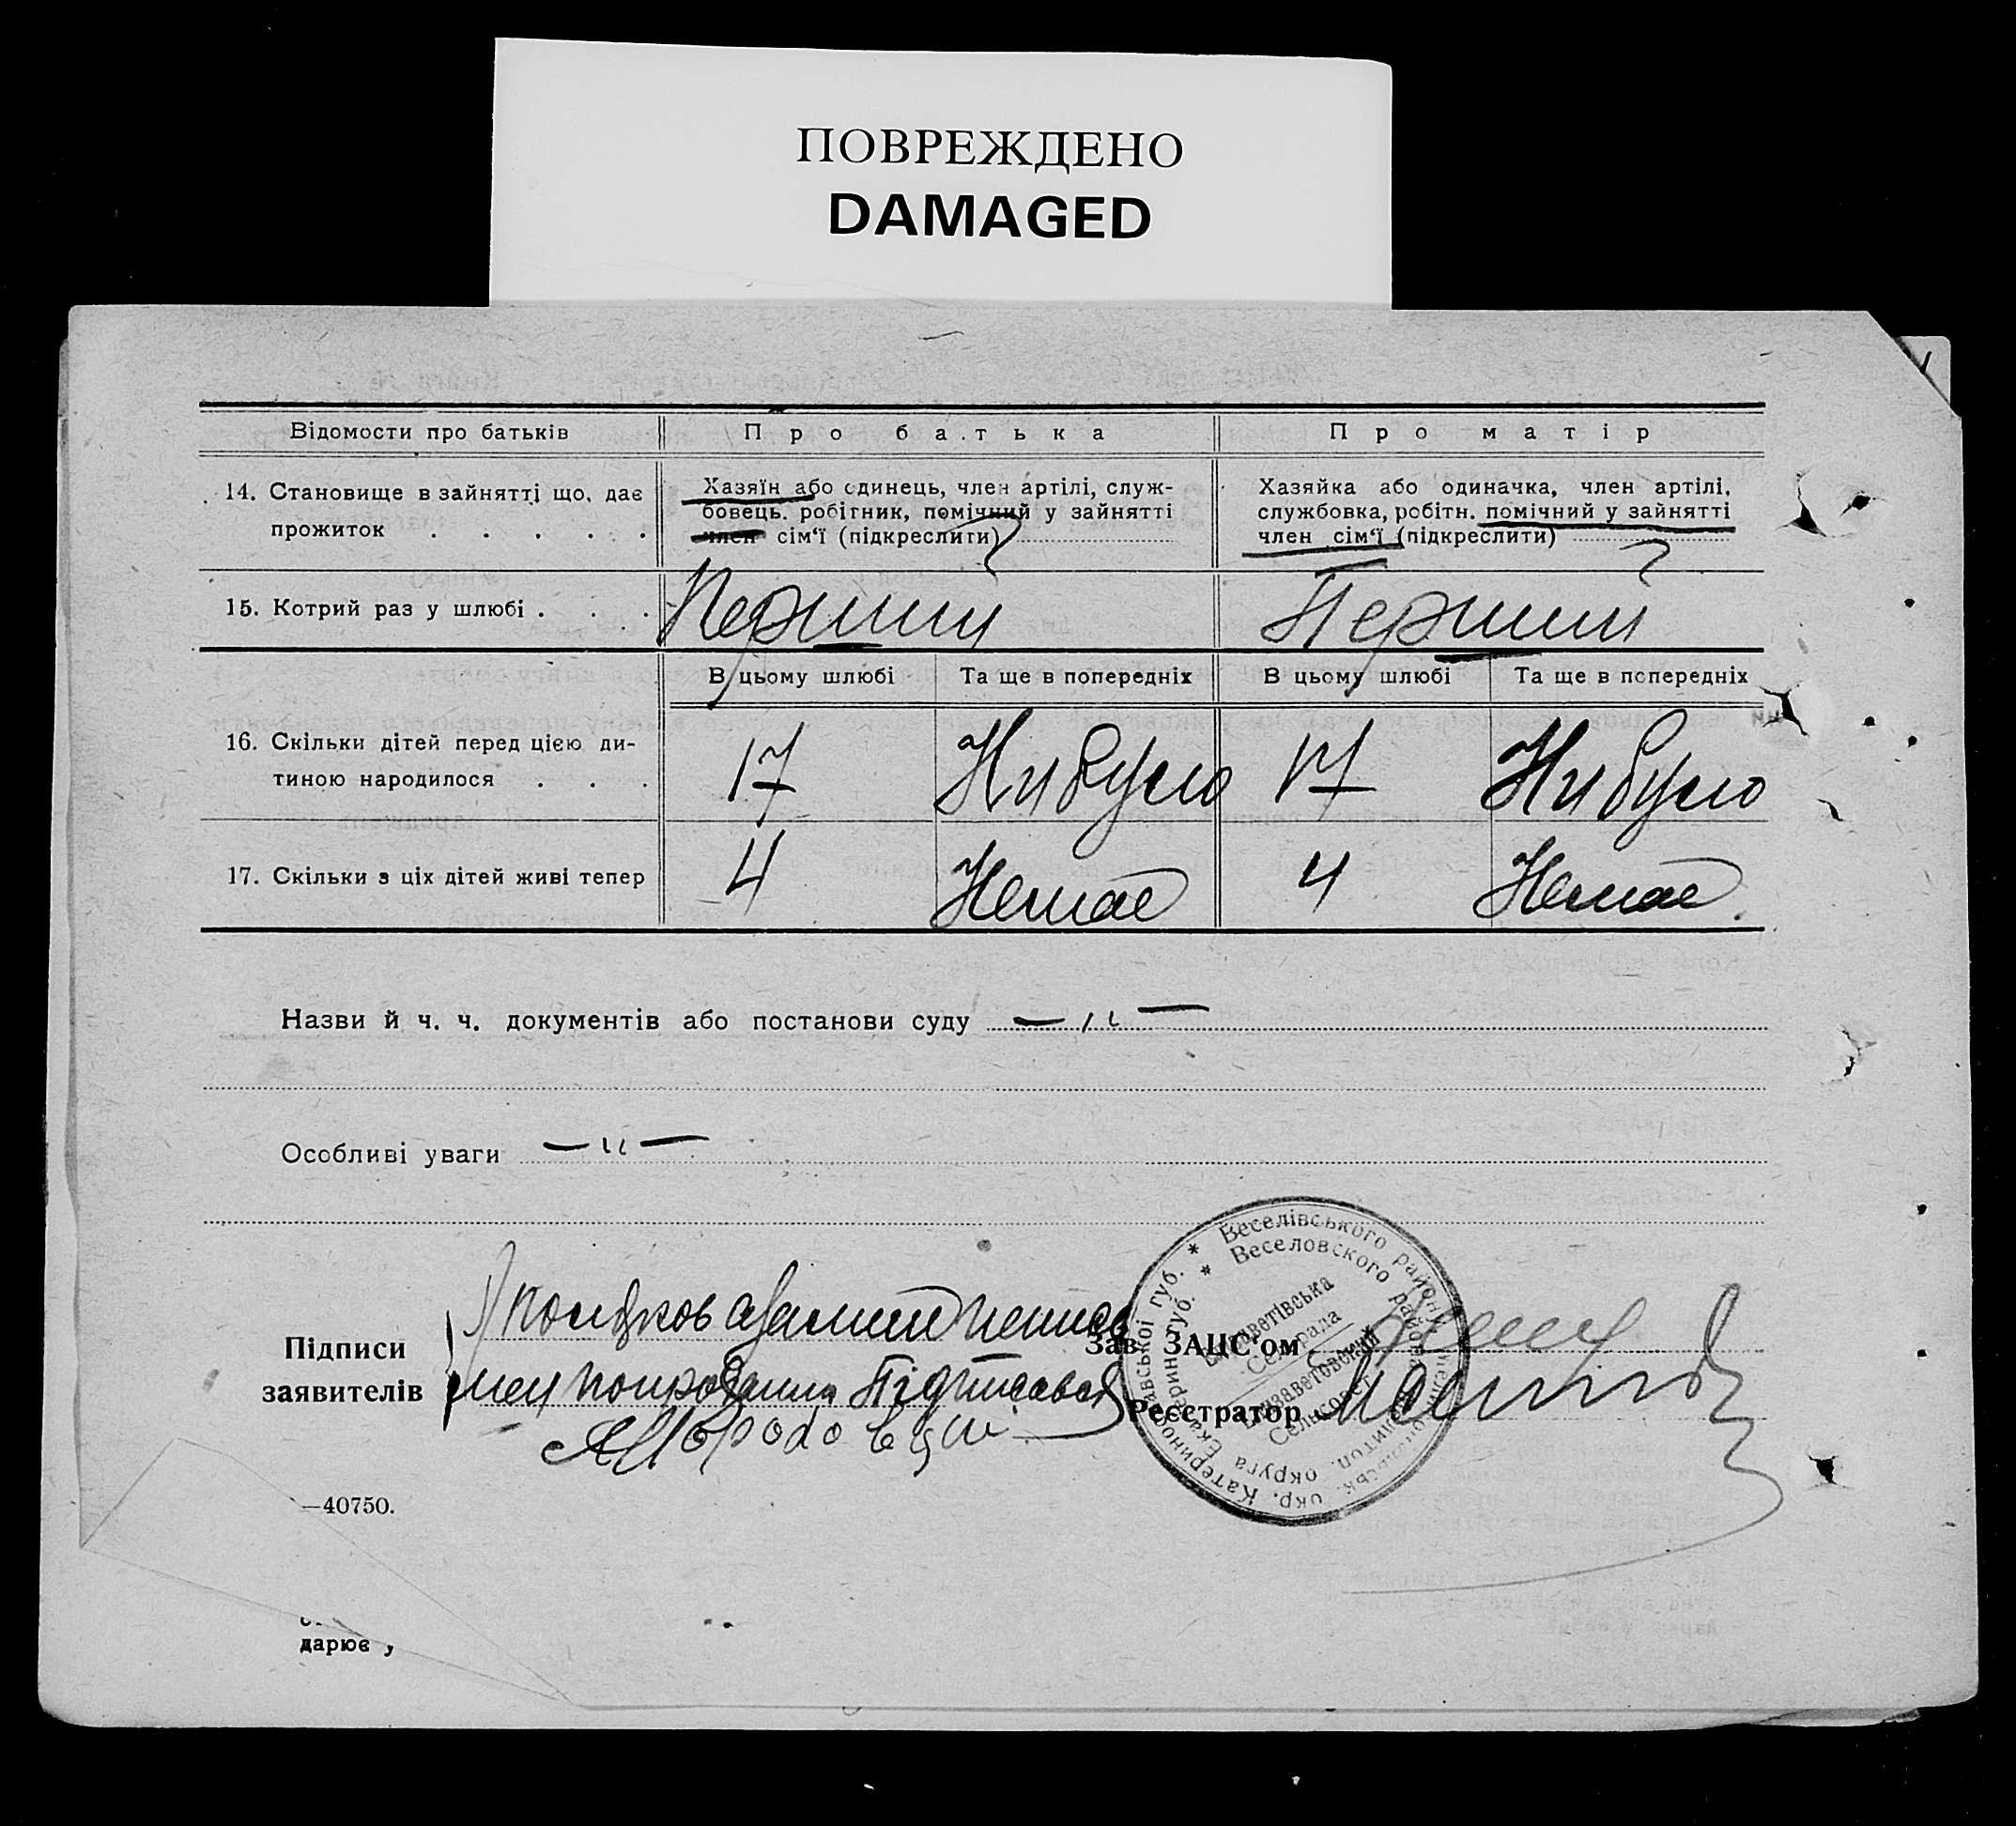 ПОВРЕЖДЕНО
DAMAGED
Відомости про батьків
Про батька
Про матір
14. Становище в зайнятті що, дає
прожиток . . . . .
Хазяїн або одинець, член артілі, служ-
бовець. робітник, помічний у зайнятті
член сім‘ї (підкреслити)
Хазяйка або одиначка, член артілі,
службовка, робітн. помічний у зайнятті
член сім‘ї (підкреслити)
15. Котрий раз у шлюбі . . .
Перший
Перший
В цьому шлюбі
Та ще в попередніх
В цьому шлюбі
Та ще в попередніх
16. Скільки дітей перед цією ди-
тиною народилося . . .
17
Ни було
17
Ни було
17. Скільки з ціх дітей живі тепер
4
Немає
4
Немає
Назви й ч. ч. документів або постанови суду — „ —
Особливі уваги — „ —
Підписи
заявителів
неграмотний
Підписався
Зав. ЗАЦС‘ом
Реєстратор
* Веселівського району Мелітопольськ. окр. Катеринославської губ.
* Веселовского района Мелитоп. округа Екатерин. губ.
Єлизаветівська
Сельрада
Елизаветовский
Сельсовет
—40750.
дарює у